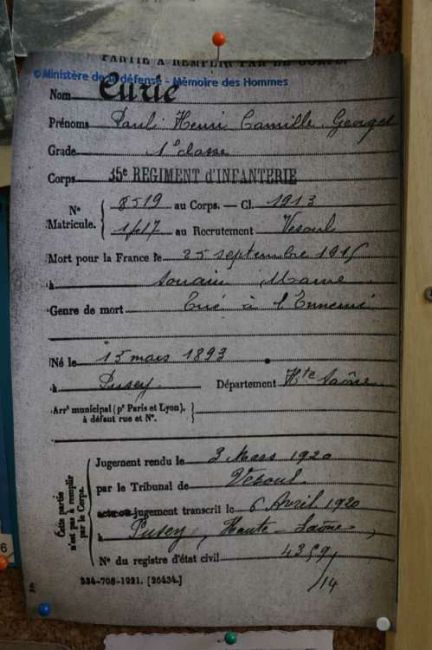 PARTIE A REMPLIR PAR LE CORPS.
© Ministère de la défense - Mémoire des Hommes
Nom Curie
Prénoms Paul Henri Camille Georges
Grade 1e classe
Corps 35e REGIMENT d'INFANTERIE
N° Matricule. 8519 au Corps. — Cl. 1913
au Recrutement Vesoul
Mort pour la France le 25 septembre 1915
à Souain Marne
Genre de mort Tué à l'Ennemi
Né le 15 mars 1893
à Pusey Département Hte Saône
Arrt municipal (pr Paris et Lyon), à défaut rue et N°.
Cette partie n'est pas à remplir par le Corps.
Jugement rendu le 3 Mars 1920
par le Tribunal de Vesoul
acte ou jugement transcrit le 6 Avril 1920
à Pusey, Haute-Saône
N° du registre d'état civil
534-708-1921. [26434.]
/14